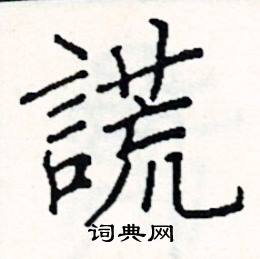 謊
词典网